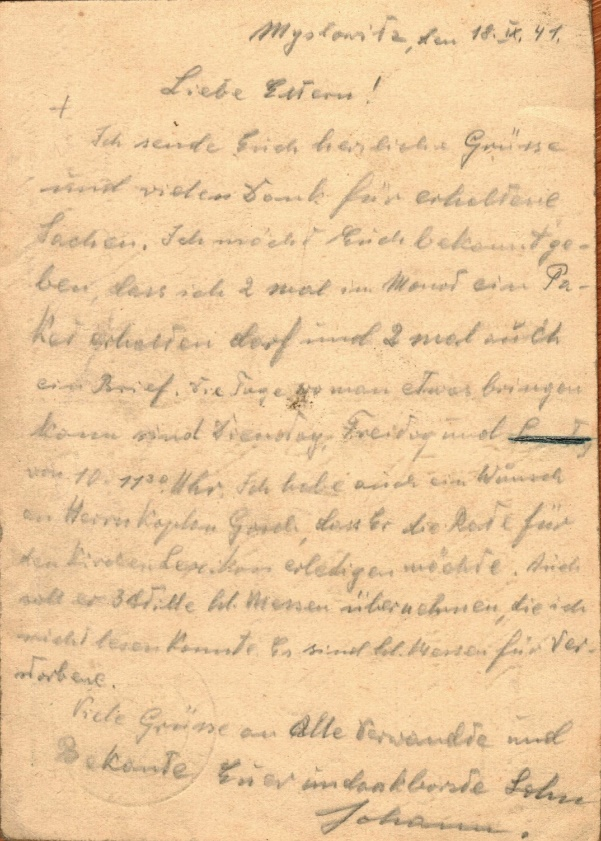 Myslowitz, den 18.IX.41.
Liebe Eltern!
+
Ich sende Euch herzliche Grüsse
und vielen Dank für erhaltene
Sachen. Ich möcht Euch bekanntge-
ben, dass ich 2 mal im Monat ein Pa-
ket erhalten darf und 2 mal auch
ein Brief. Die Tage wo man etwas bringen
kann sind Dienstag, Freitag und
von 10-11³⁰ Uhr. Ich habe auch ein Wunsch
an Herrn Kaplan, dass Er die Rate für
den Kirchen Lexikon erledigen möchte. Auch
soll er 3 stille hl. Messen übernehmen, die ich
nicht lesen konnte. Es sind hl. Messen für Ver-
storbene.
Viele Grüsse an Alle Verwandte und
Bekante, Euer undankbarste Sohn
Johann.